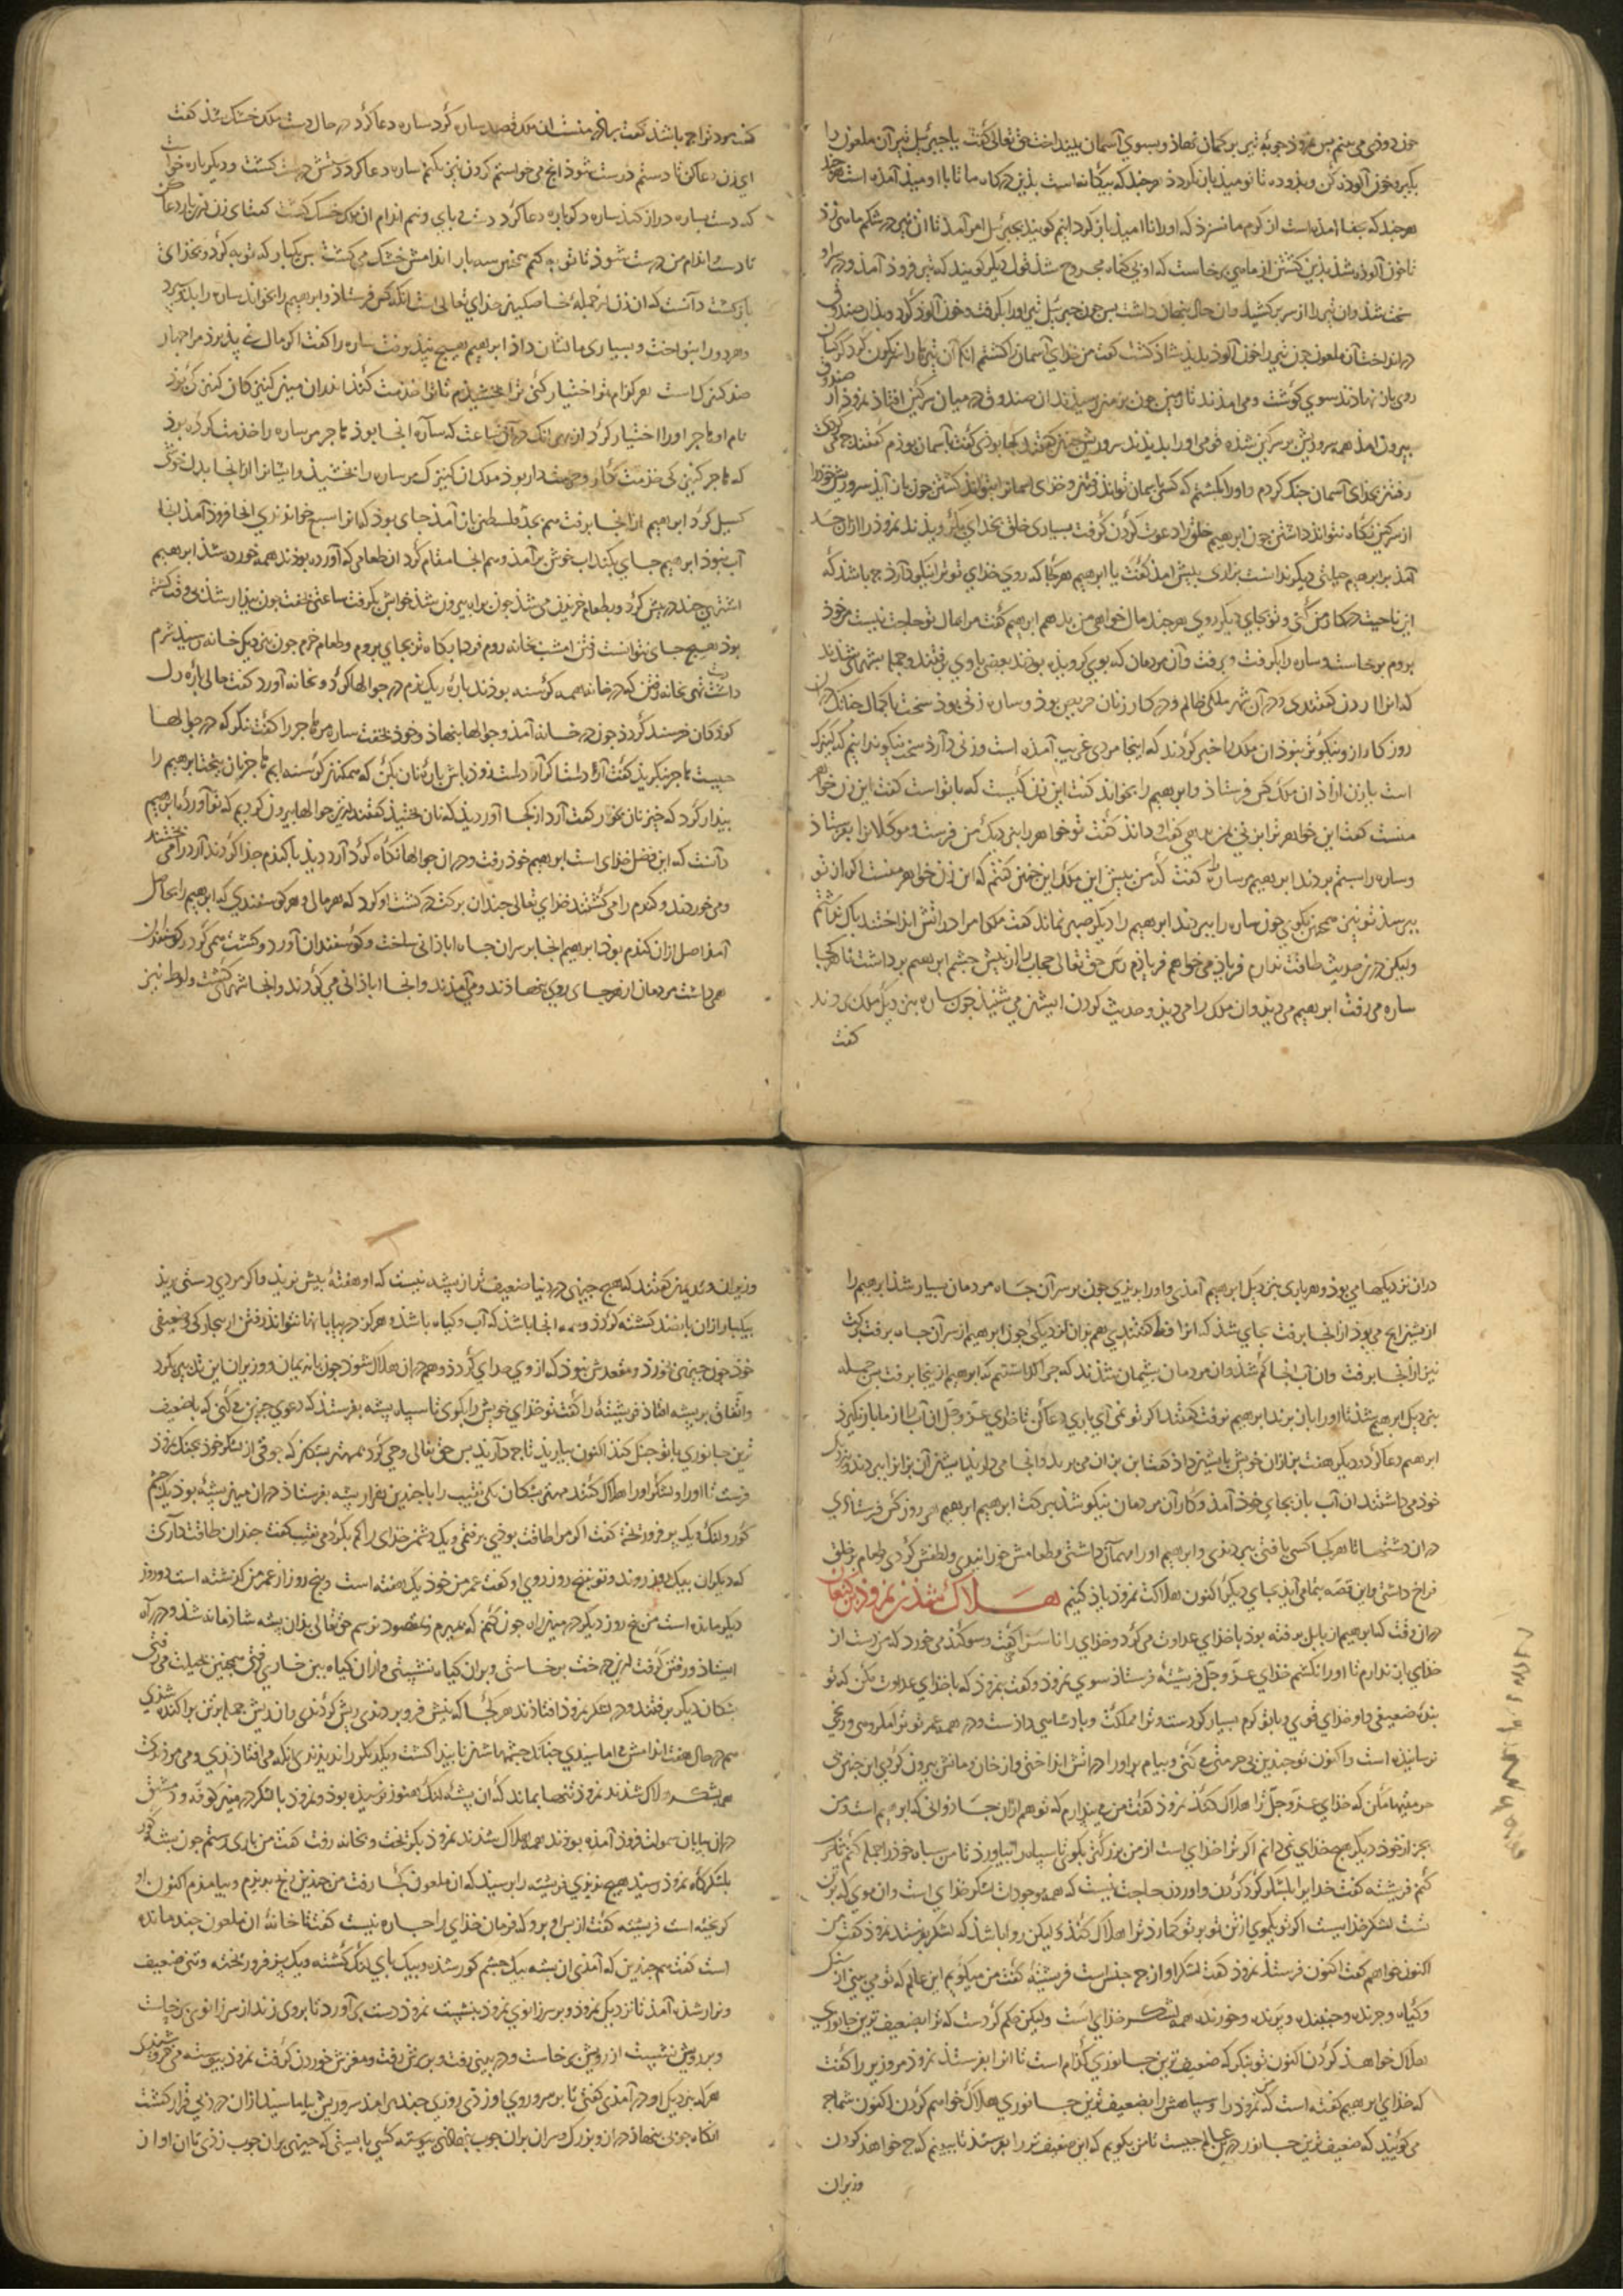 خون دوذی می بینم پس نمروذ چوبهٔ تیر بر کمان نهاذ و بسوی آسمان بینداخت حق تعالی گفت یا جبرئیل تیر آن ملعون را
بگیر و بخون آلوذه کن و بذو ده تا نومیذ باز نکردذ هر چند که بیکانه است بذین درکاه ما تا با اومیذ آمذه است
هر چند که بجفا امذه است از کرم ما نسزذ که او را ناامیذ باز کردانیم کویند بجبرئیل امر آمذ تا ان تیر در شکم ماهی زذ
تا خون آلوذه شذ بذین کشتن از ماهی برخاست که او بی کناه مجروح شذ قول دیکر کویند که تیر فروذ آمذ و در
سخت شذ و ان تیر را از سر برکشید و ان حال پنهان داشت پس چون جبرئیل تیر او را بکرفت و خون آلوذ کرد و بذان صندوق
در انداخت آن ملعون چون تیر را خون آلوذ بدیذ شاذ کشت کفت من خذای آسمان را کشتم انکاه آن را نکون کرد
روی بان نهادند سوی کوشت و می امذند تا زمین چون بزمین رسیذند ان صندوق در میان سرکین افتاذ نمروذ از صندوق
بیرون امذ همه سر و ریش بر سرکین شذه قومی او را بدیذند سر و ریش چنین کفتند کجا بوذی کفت بآسمان بوذم کفتند چه می کردی
رفتم بخذای آسمان جنک کردم و او را بکشتم که کسی بآسمان تواند رفتن و خذای اسمان را بتواند کشتن چون باز آیذ سر و ریش خوذ را
از سرکین نکاه نتواند داشتن چون ابرهیم خلق را دعوت کردن کرفت بسیاری خلق بخذای بکرویذند نمروذ را ازان حسد
آمذ بر ابرهیم حیلتی دیکر ندانست بزاری پیش امذ کفت یا ابرهیم هر کجا که روی خذای تو ترا نیکو دارذ چه باشذ که
این ناحیت در کار من کنی و تو بجای دیکر روی هر چند مال خواهی من بدهم ابرهیم کفت مرا مال تو حاجت نیست من خوذ
بروم برخاست و ساره را بکرفت و برفت و آن مردمان که بوی کرویذه بوذند بعضی با وی رفتند و جمله بشهری شذند
که انرا اردن کفتندی و در آن شهر ملکی ظالم و در کار زنان حریص بوذ و ساره زنی بوذ سخت با جمال چنانک در ان
روزکار از و نیکوتر نبوذ ان ملک را خبر کردند که اینجا مردی غریب آمذه است و زنی دارذ سخت نیکو
است یا زن ازاذ ان ملک کس فرستاذ و ابرهیم را بخواند کفت این زن کیست که با تو است کفت این زن خواهر
منست کفت این خواهر ترا بزنی بمن ده کفت او داند کفت تو خواهر را بنزدیک من فرست و موکلان را بفرستاذ
و ساره را بستم ببردند ابرهیم مر ساره را کفت که من پیش این ملک این چنین کفتم که این زن خواهر منست اکر از تو
بپرسذ تو نیز همچنین بکوی چون ساره را ببردند ابرهیم را دیکر صبر نماند کفت ملکا مرا در اتش انداختند باک نداشتم
و لیکن درین حدیث طاقت ندارم فریاد می خواهم فریادم رس حق تعالی حجاب را از پیش چشم ابرهیم برداشت تا هر کجا
ساره می رفت ابرهیم می دیذ و ان ملک را می دیذ و حدیث کردن ایشان می شنیذ چون ساره بنزدیک ملک بردند
کفت
کفت بوذ ترا چه باشذ کفت برادر منست ان ملک قصد ساره کرد ساره دعا کرد در حال دست ملک خشک شذ کفت
ای زن دعا کن تا دستم درست شوذ انچ می خواستم کردن نیز نکنم ساره دعا کرد دستش درست کشت و دیکر باره خواست
که دست بساره دراز کند ساره دکرباره دعا کرد دست و پای و نیم اندام ان ملک خشک کشت کفتا ای زن این بار دعا کن
تا دست و اندام من درست شوذ تا توبه کنم همچنین سه بار اندامش خشک می کشت پس یکبار که توبه کرد و بخذای
بازکشت دانست که ان زن از جمله خاصکین خذای تعالی است انکه کس فرستاذ و ابرهیم را بخواند ساره را بذو سپرد
و هر دو را بنواخت و بسیاری مال شان داذ ابرهیم هیچ نپذیرفت ساره را کفت اکر مال نمی پذیرذ مرا چهار
صد کنیزک است هر کدام تو اختیار کنی ترا بخشیذم تا ترا خدمت کند از ان میان کنیزکان کنیزکی بوذ
نام او هاجر او را اختیار کرد از بهر انک دران ساعت که ساره انجا بوذ هاجر مر ساره را خذمت کرده بوذ
که هاجر کنیزکی خذمت کار و حرمت دار بوذ ملک ان کنیزک مر ساره را بخشیذ و ایشان را از انجا بدل خوش
کسیل کرد ابرهیم از انجا برفت هم بحذ فلسطین باز آمذ جای بوذ که انرا سبع خواندندی انجا فروذ آمذ انجا
آب نبوذ ابرهیم چاهی بکند اب خوش برآمذ و هم انجا مقام کرد ان طعامی که آورده بوذند همه خورده شذ ابرهیم
اشتری چند در پیش کرد و بطعام خریدن می شذ چون براه بیرون شذ خوابش بکرفت ساعتی بخفت چون بیذار شذ بی وقت کشته
بوذ هیچ جای نتوانست رفتن امشب بخانه روم فردا بکاه تر بجای بروم و طعام خرم چون بنزدیک خانه رسیذ شرم
داشت تهی بخانه رفتن که در خانه همه کرسنه بوذند پارهٔ ریک نرم در جوالها کرد و بخانه آورد کفت حالی پاره دل
کوذکان خرسند کرذذ چون در خانه آمذ و جوالها بنهاذ و خوذ بخفت ساره مر هاجر را کفت بنکر که در جوالها
چیست هاجر بنکریذ کفت آرد است کفت اکر آرد است زوذ باش پارهٔ نان بکن که همکنان کرسنه ایم هاجر نان بپخت ابرهیم را
بیدار کرد که خیز نان بخوار کفت آرد از کجا آوردیذ که نان پختیذ کفتند ازین جوالها بیرون کردیم که تو آوردهٔ ابرهیم
دانست که این فضل خذای است ابرهیم خوذ رفت و در ان جوالها نکاه کرد آرد دیذ با کندم جذا کردند آرد را می پختند
و می خوردند و کندم را می کشتند خذای تعالی چندان برکت در کشت او کرد که هر مالی و هر کوسفندی که ابرهیم را بحاصل
آمذ اصل ازان کندم بوذ ابرهیم انجا بر سر ان چاه اباذانی ساخت و کوسفندان آورد و کشت همی کرد و کوسفندان
همی داشت مردمان از هر جای روی بنهاذند و می آمذند و انجا اباذانی می کردند و انجا شهری کشت و لوط نیز
دران نزدیکها می بوذ و هر باری بنزدیک ابرهیم آمذی و او را بدیذی چون بر سر آن چاه مردمان بسیار شذ ابرهیم را
از بیش انچ می بوذ از انجا برفت بجای شذ که انرا قط کفتندی هم بران نزدیکی چون ابرهیم از سر آن چاه برفت برکت
نیز از انجا برفت و ان آب انجا کم شذ و ان مردمان پشیمان شذند که چرا کذاشتیم که ابرهیم از اینجا برفت پس جمله
بنزدیک ابرهیم شذند تا او را باز برند ابرهیم نرفت کفتند اکر تو نمی آیی باری دعا کن تا خذای عز و جل آن آب را از ما باز نکیرذ
ابرهیم دعا کرد و دیکر هفت بز ازان خویش بایشان داذ کفتا این بزان من برید و انجا می داریذ ایشان آن بزانرا ببردند و بنزدیک
خوذ می داشتند ان آب باز بجای خوذ آمذ و کار آن مردمان نیکو شذ ببرکت ابرهیم ابرهیم هر روز کس فرستاذی
دران دشتها تا هر کجا کسی یافتی ببردی و ابرهیم او را مهمان داشتی و طعامش خورانیدی و لطفش کردی و طعام بر خلق
فراخ داشتی و این قصه بتمامی آیذ بجای دیکر اکنون هلاکت نمروذ یاذ کنیم هلاک شذن نمروذ بن کنعان
دران وقت که ابرهیم از بابل برفته بوذ با خذای عداوت می کرد و خذای را ناسزا کفت و سوکند می خورد که من دست از
خذای باز ندارم تا او را نکشم خذای عز و جل فریشته فرستاذ سوی نمروذ و کفت نمروذ که با خذای عداوت مکن که تو
بندهٔ ضعیفی و او خذای قوی و با تو کرم بسیار کردست و ترا مملکت و پادشاهی داذست و در همه عمر تو ترا المکروهی و رنجی
نرسانیذه است و اکنون تو چندین بی حرمتی می کنی و پیامبر او را در اتش انداختی و از خان و مانش بیرون کردی این چنین
حرمتیها مکن که خذای عز و جل ترا هلاک کند نمروذ کفت من می پندارم که تو هم ازان جاذوانی که ابرهیم است و من
بجز از خوذ دیکر هیچ خذای نمی دانم اکر ترا خذای است از من بزرکتر بکو تا سپاه را بیاورذ تا من سپاه خوذ را جمله کنم
کنم فریشته کفت خذایرا لشکر کرد کردن و اوردن حاجت نیست که همه موجودات لشکر خذای است و ان موی که برتن
تست لشکر خذایست اکر تو یکموی از تن تو بر تو کمارد ترا هلاک کنذ و لیکن روا باشذ که لشکر بفرستذ نمروذ کفت من
اکنون خواهم کفت اکنون فرستذ نمروذ کفت لشکر او از چه جنس است فریشته کفت من میکویم این عالم که تو می بینی از سنک
و کیاه و چرنده و جنبنده و پرنده و خورنده همه لشکر خذای است و لیکن حکم کردست که ترا بضعیف ترین جانوری
هلاک خواهذ کردن اکنون تو بنکر که ضعیف ترین جانوری کدام است تا انرا بفرستذ نمروذ مر وزیر را کفت
که خذای ابرهیم کفته است که من نمروذ را و سپاهش را بضعیف ترین جانوری هلاک خواهم کردن اکنون شما چه
می کوئیذ که ضعیف ترین جانور در عالم چیست تا من بکویم که این ضعیف تر را بفرستذ تا ببینم که چه خواهذ کردن
وزیران
وزیران و ندیمان کفتند که هیچ چیزی در دنیا ضعیف تر از پشه نیست که او هفتهٔ بیش نزید و اکر مردی دستی برزیذ
بیکبار ازان باشد کشته کردد و همه انجا باشذ که آب و کیاه باشذ و هرکز در بیابانها نتواند رفتن از بیچارکی و ضعیفی
خوذ چون چیزی بخورد و مقعدش نبوذ که از وی جدای کردذ و هم دران هلاک شوذ چون با ندیمان و وزیران این تدبیر کرد
و اتفاق بر پشه افتاذ فریشته را کفت تو خذای خویش را بکوی تا سپاه پشه بفرستذ که دعوی چنین می کنی که با ضعیف
ترین جانوری با تو جنک کند اکنون بیاریذ تا چه داریذ پس حق تعالی وحی کرد بمهتر پشکان که جوقی از لشکر خوذ بجنک نمروذ
فرست تا او را و لشکر او را هلاک کنند مهتر پشکان یکی نقیب را با چندین هزار پشه بفرستاذ دران میان پشهٔ بوذ یک چشم
کور و لنک و یک پر فرو ریخته کفت اکر مرا طاقت بوذی برفتمی و یک دشمن خذای را کم بکردمی نقیب کفت چندان طاقت داری
که دیکران بیک روز روند و تو بپنج روز روی او کفت عمر من خوذ یک هفته است و پنج روز از عمر من کذشته است دو روز
دیکر مانده است من پنج روز دیکر در میان راه چون کنم که بمیرم و بمقصود نرسم حق تعالی بذان پشه شاذمانه شذ و در راه
ایستاذ و رفتن کرفت ازین درخت برخاستی و بران کیاه نشستی و ازان کیاه بدین خار همچنین بحیلت می رفتی
پشکان دیکر برفتند و در لشکر نمروذ افتاذند هر کجا که نیش فرو بردندی ریش کردندی و ان ریش جمله بر تن پراکنده شذی
هم در حال هفت اندامش بر اماسیذی چنانک چشمهاشان نابینا کشت و یکدیکر را ندیذند چنانکه می افتاذندی و می مردندی
همه لشکر هلاک شذند نمروذ تنها بماند که ان پشهٔ لنک هنوز نرسیذه بوذ و نمروذ با لشکر در میان کوفه و دمشق
دران بیابان فروذ آمذه بوذند همه هلاک شذند نمروذ بکریخت و بخانه رفت کفت من باری رستم چون پشه کور
بلشکرکاه نمروذ رسیذ هیچ نبوذی فریشته را پرسید که ان ملعون کجا رفت من چندین رنج ببردم و بیامذم اکنون او
کریخته است فریشته کفت از پس او برو که فرمان خذای را چاره نیست کفت تا خانهٔ ان ملعون چند مانده
است کفت هم چندین که آمذی ان پشه بیک چشم کور شذه و بیک پای لنک کشته و یک پر فرو ریخته و تنی ضعیف
و نزار شذه آمذ تا نزدیک نمروذ و بر سر زانوی نمروذ بنشست نمروذ دست برآورد تا بر وی زند از سر زانوی برخاست
و بر رویش نشست از رویش برخاست و در بینی رفت و بسرش رفت و مغزش خوردن کرفت نمروذ پیوسته می خروشیدی
هر که بنزدیک او در آمذی کفتی تا بر سر و روی او زدی روزی چند برامذ سر و ریش بیاماسیذ ازان درد بی قرار کشت
انکاه چوبی بنهاذ دراز و بزرک و سر ان بران چوب بنهاذی پیوسته کسی بایستی که چیزی بران چوب زذی تا ان اواز